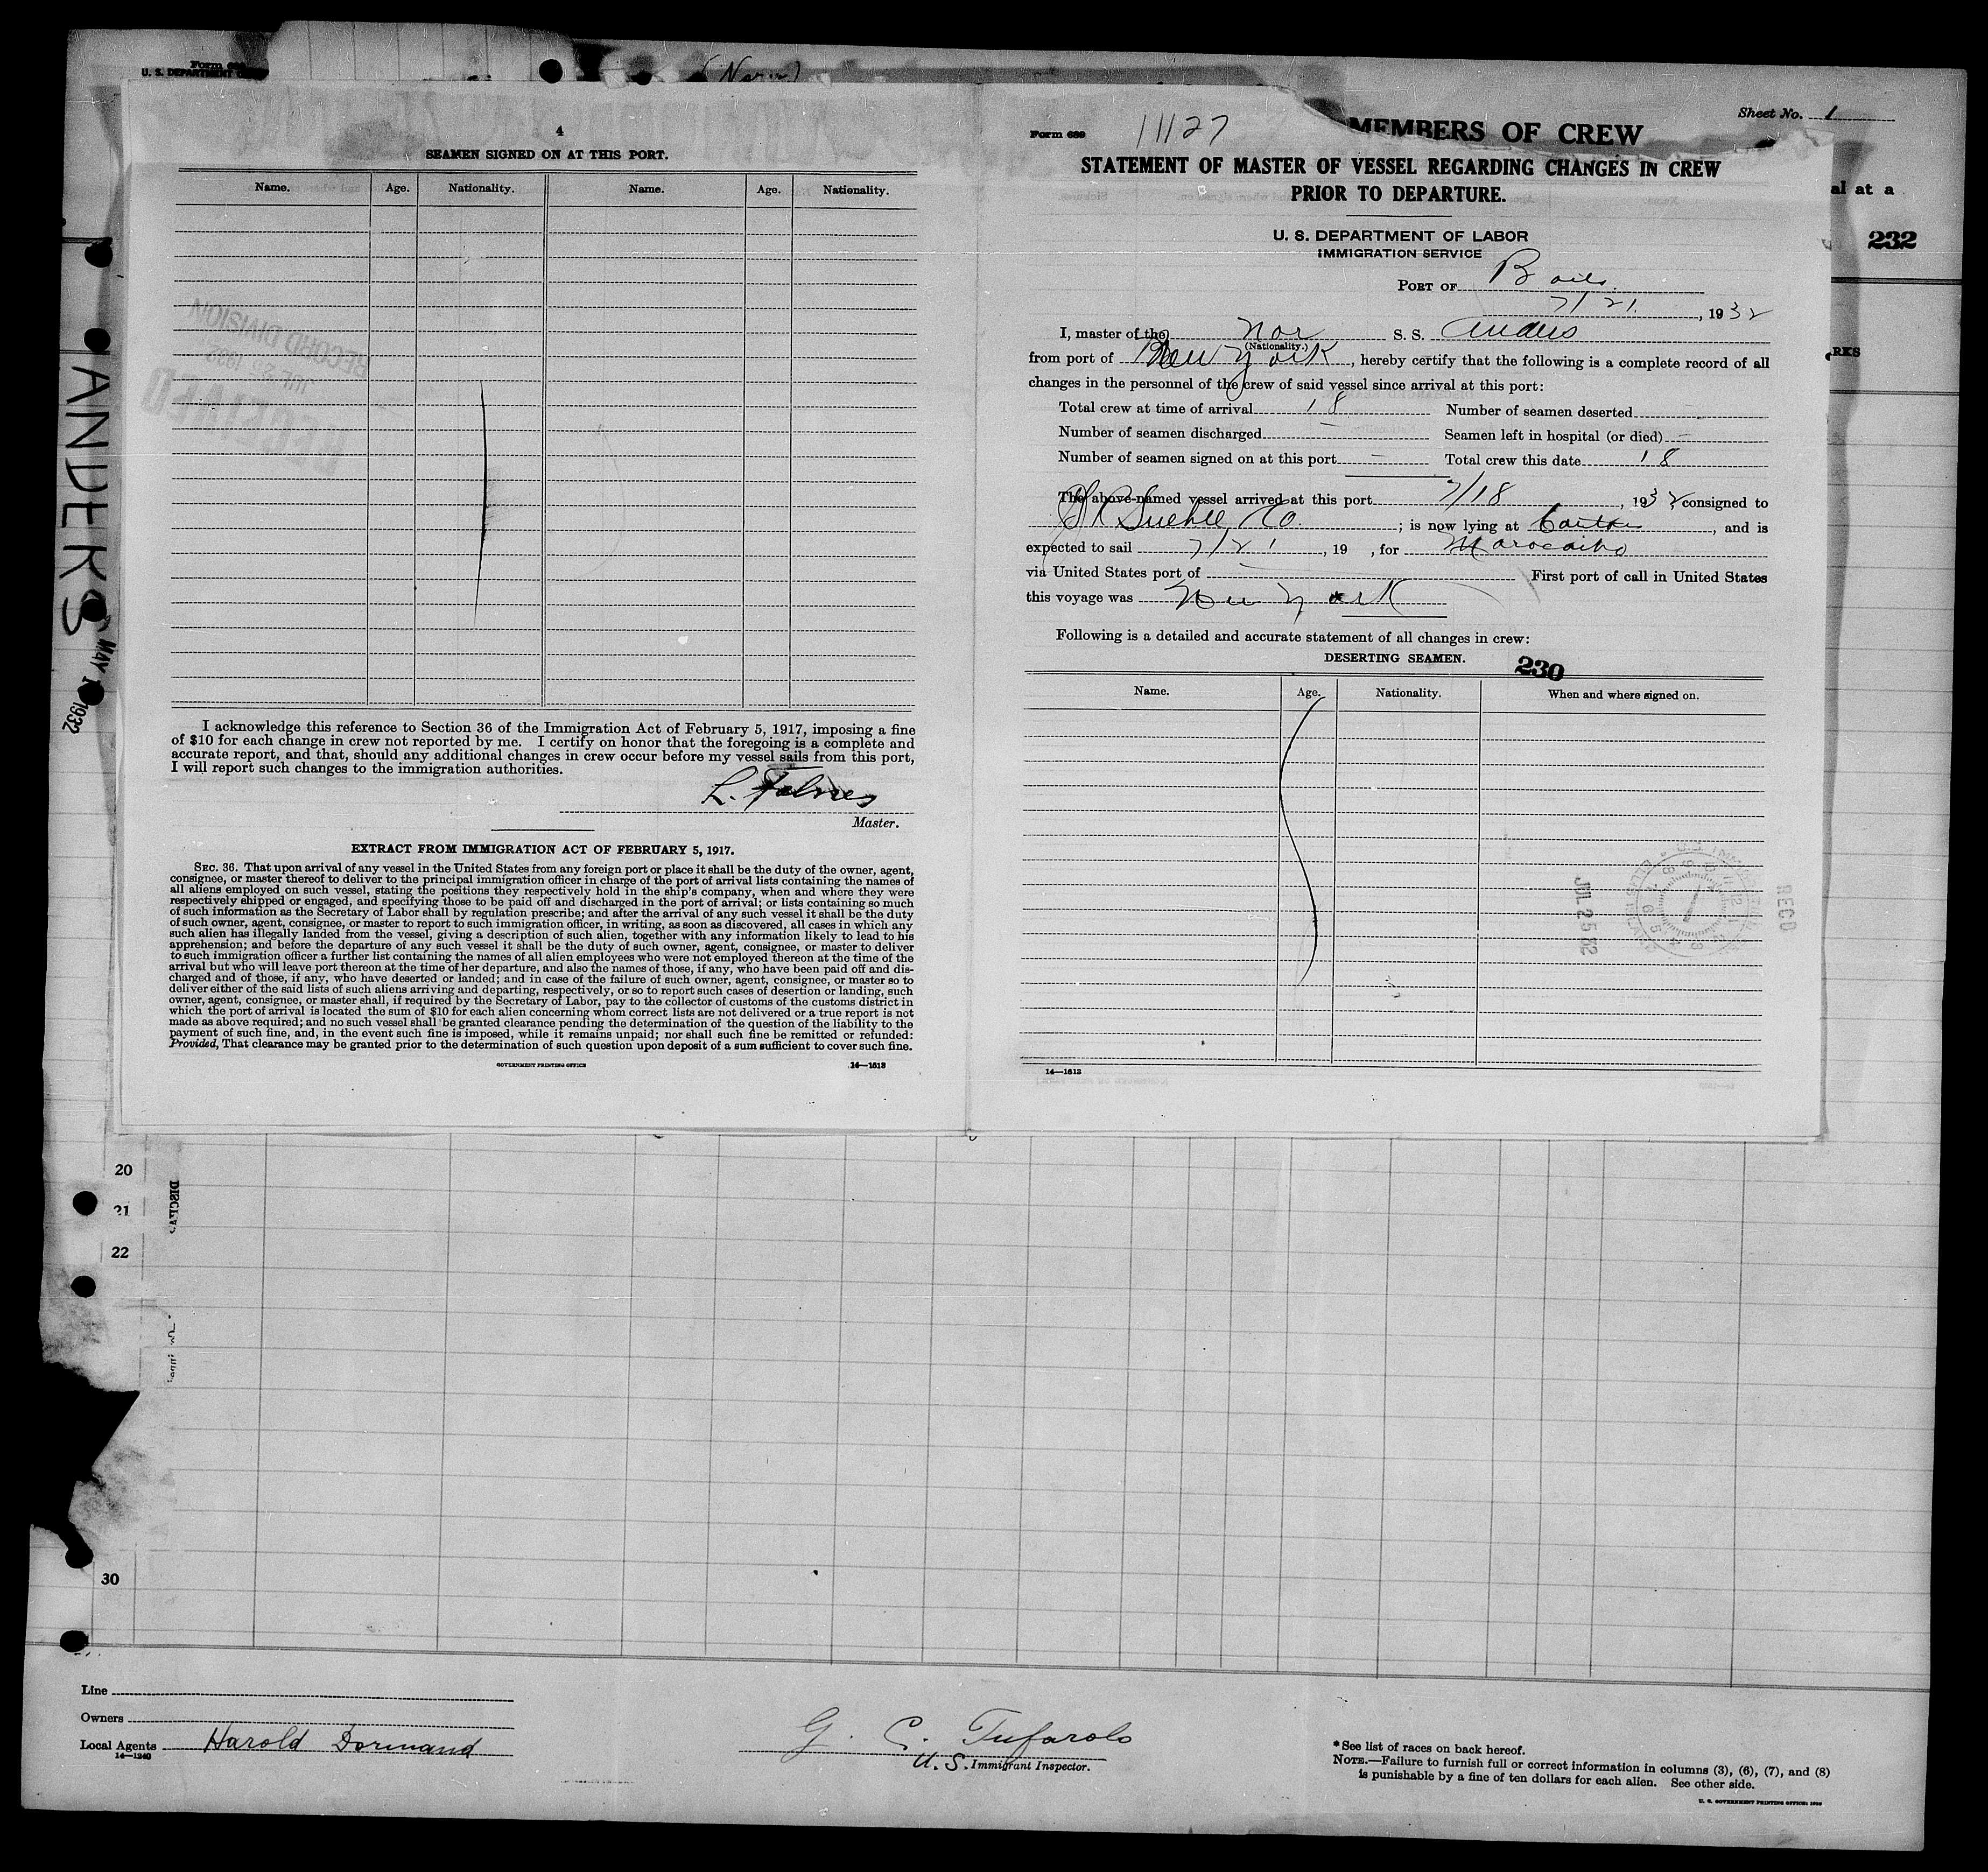 Form 689
U. S. DEPARTMENT
Sheet No. 1
MEMBERS OF CREW
al at a
232
RKS
ANDERS
MAY
1932
4
SEAMEN SIGNED ON AT THIS PORT.
Name. Age. Nationality. Name. Age. Nationality.
RECEIVED
JUL 25 1932
RECORD DIVISION
I acknowledge this reference to Section 36 of the Immigration Act of February 5, 1917, imposing a fine
of $10 for each change in crew not reported by me. I certify on honor that the foregoing is a complete and
accurate report, and that, should any additional changes in crew occur before my vessel sails from this port,
I will report such changes to the immigration authorities.
L.
Master.
EXTRACT FROM IMMIGRATION ACT OF FEBRUARY 5, 1917.
SEC. 36. That upon arrival of any vessel in the United States from any foreign port or place it shall be the duty of the owner, agent,
consignee, or master thereof to deliver to the principal immigration officer in charge of the port of arrival lists containing the names of
all aliens employed on such vessel, stating the positions they respectively hold in the ship's company, when and where they were
respectively shipped or engaged, and specifying those to be paid off and discharged in the port of arrival; or lists containing so much
of such information as the Secretary of Labor shall by regulation prescribe; and after the arrival of any such vessel it shall be the duty
of such owner, agent, consignee, or master to report to such immigration officer, in writing, as soon as discovered, all cases in which any
such alien has illegally landed from the vessel, giving a description of such alien, together with any information likely to lead to his
apprehension; and before the departure of any such vessel it shall be the duty of such owner, agent, consignee, or master to deliver
to such immigration officer a further list containing the names of all alien employees who were not employed thereon at the time of the
arrival but who will leave port thereon at the time of her departure, and also the names of those, if any, who have been paid off and dis-
charged and of those, if any, who have deserted or landed; and in case of the failure of such owner, agent, consignee, or master so to
deliver either of the said lists of such aliens arriving and departing, respectively, or so to report such cases of desertion or landing, such
owner, agent, consignee, or master shall, if required by the Secretary of Labor, pay to the collector of customs of the customs district in
which the port of arrival is located the sum of $10 for each alien concerning whom correct lists are not delivered or a true report is not
made as above required; and no such vessel shall be granted clearance pending the determination of the question of the liability to the
payment of such fine, and, in the event such fine is imposed, while it remains unpaid; nor shall such fine be remitted or refunded:
Provided, That clearance may be granted prior to the determination of such question upon deposit of a sum sufficient to cover such fine.
GOVERNMENT PRINTING OFFICE 14—1613
Form 689 11127
STATEMENT OF MASTER OF VESSEL REGARDING CHANGES IN CREW
PRIOR TO DEPARTURE.
U. S. DEPARTMENT OF LABOR
IMMIGRATION SERVICE
PORT OF
7/21, 1932
I, master of the Nor S. S. Anders
(Nationality.)
from port of New York, hereby certify that the following is a complete record of all
changes in the personnel of the crew of said vessel since arrival at this port:
Total crew at time of arrival 18 Number of seamen deserted
Number of seamen discharged — Seamen left in hospital (or died) —
Number of seamen signed on at this port — Total crew this date 18
The above-named vessel arrived at this port 7/18, 1932 consigned to
Co.; is now lying at Canton, and is
expected to sail 7/21, 19 , for Maracaibo
via United States port of — First port of call in United States
this voyage was New York
Following is a detailed and accurate statement of all changes in crew:
DESERTING SEAMEN.
230
Name. Age. Nationality. When and where signed on.
REC'D
JUL 25 32
14—1613
20
21
22
30
Line
Owners
Local Agents Harold Dormand
14—1240
G. C. Tufarolo
U. S. Immigrant Inspector.
*See list of races on back hereof.
NOTE.—Failure to furnish full or correct information in columns (3), (6), (7), and (8)
is punishable by a fine of ten dollars for each alien. See other side.
U. S. GOVERNMENT PRINTING OFFICE: